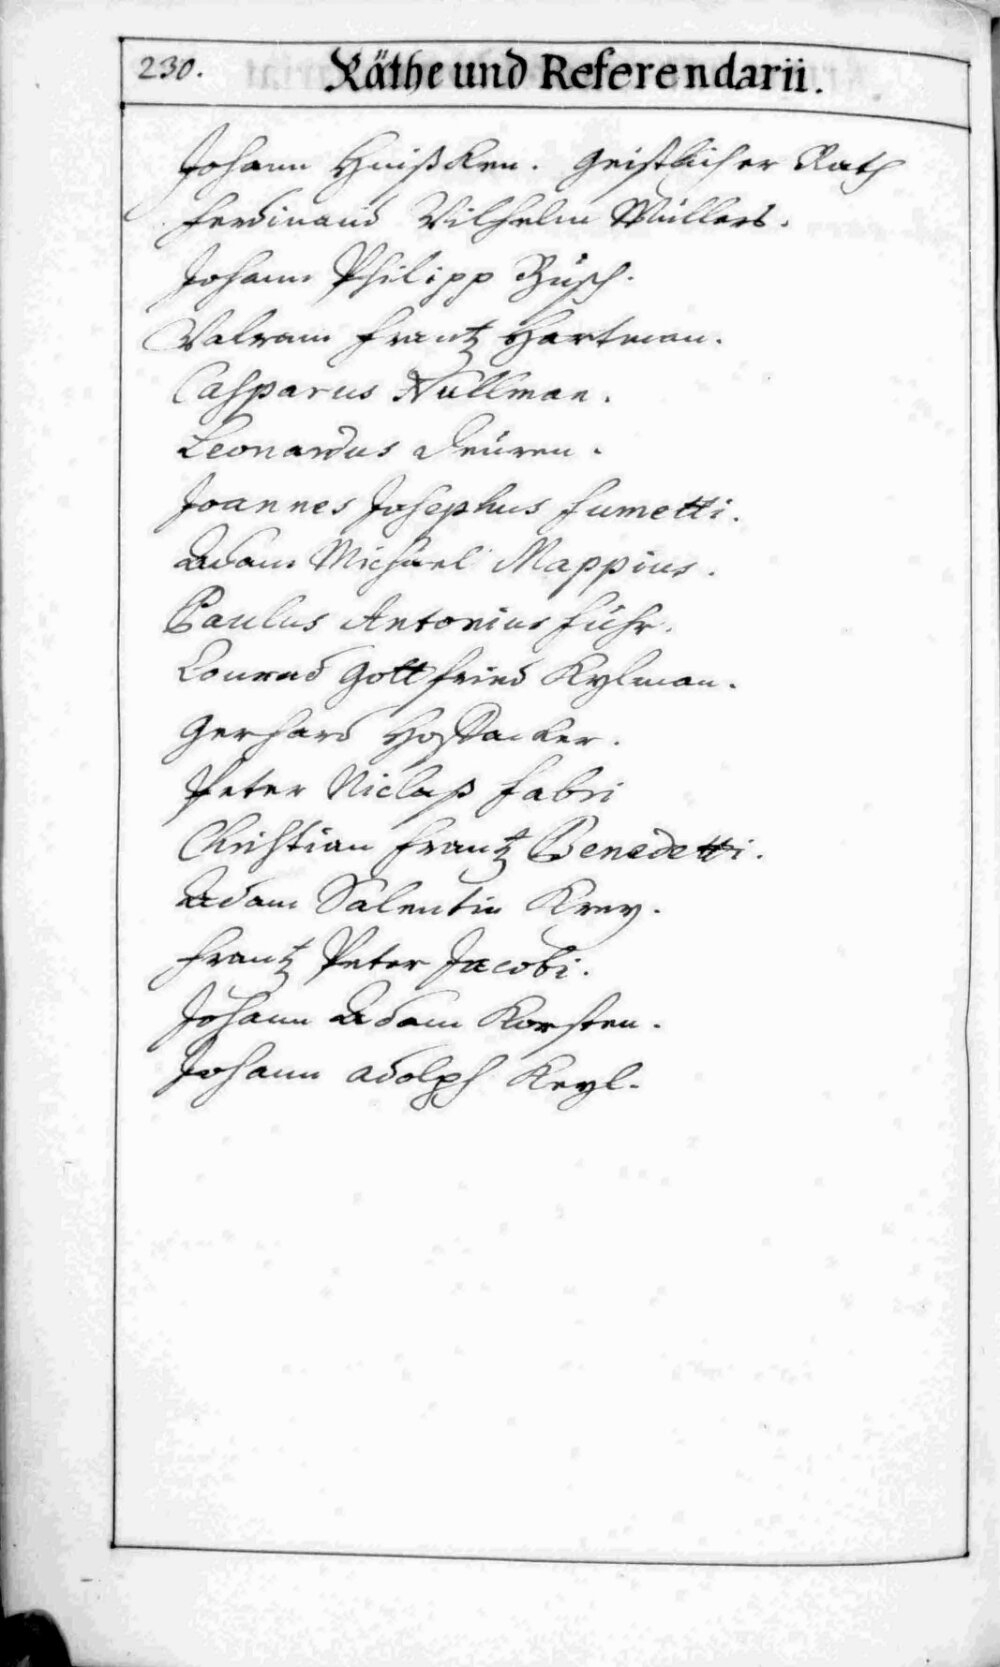 230. Räthe und Referendarii.
Johann Huißken. Geistlicher Rath
Ferdinand Wilhelm Müllers.
Johann Philipp Büsch.
Walram Frantz Hartman.
Casparus Nullman.
Leonardus Deuren.
Joannes Josephus Fumetti.
Adam Michael Mappius.
Paulus Antonius Führ.
Conrad Gottfried Kylman.
Gerhard Hostacker.
Peter Niclaß Fabri
Christian Frantz Benedetti.
Adam Salentin Krey.
Frantz Peter Jacobi.
Johann Adam Korsten.
Johann Adolph Keyl.